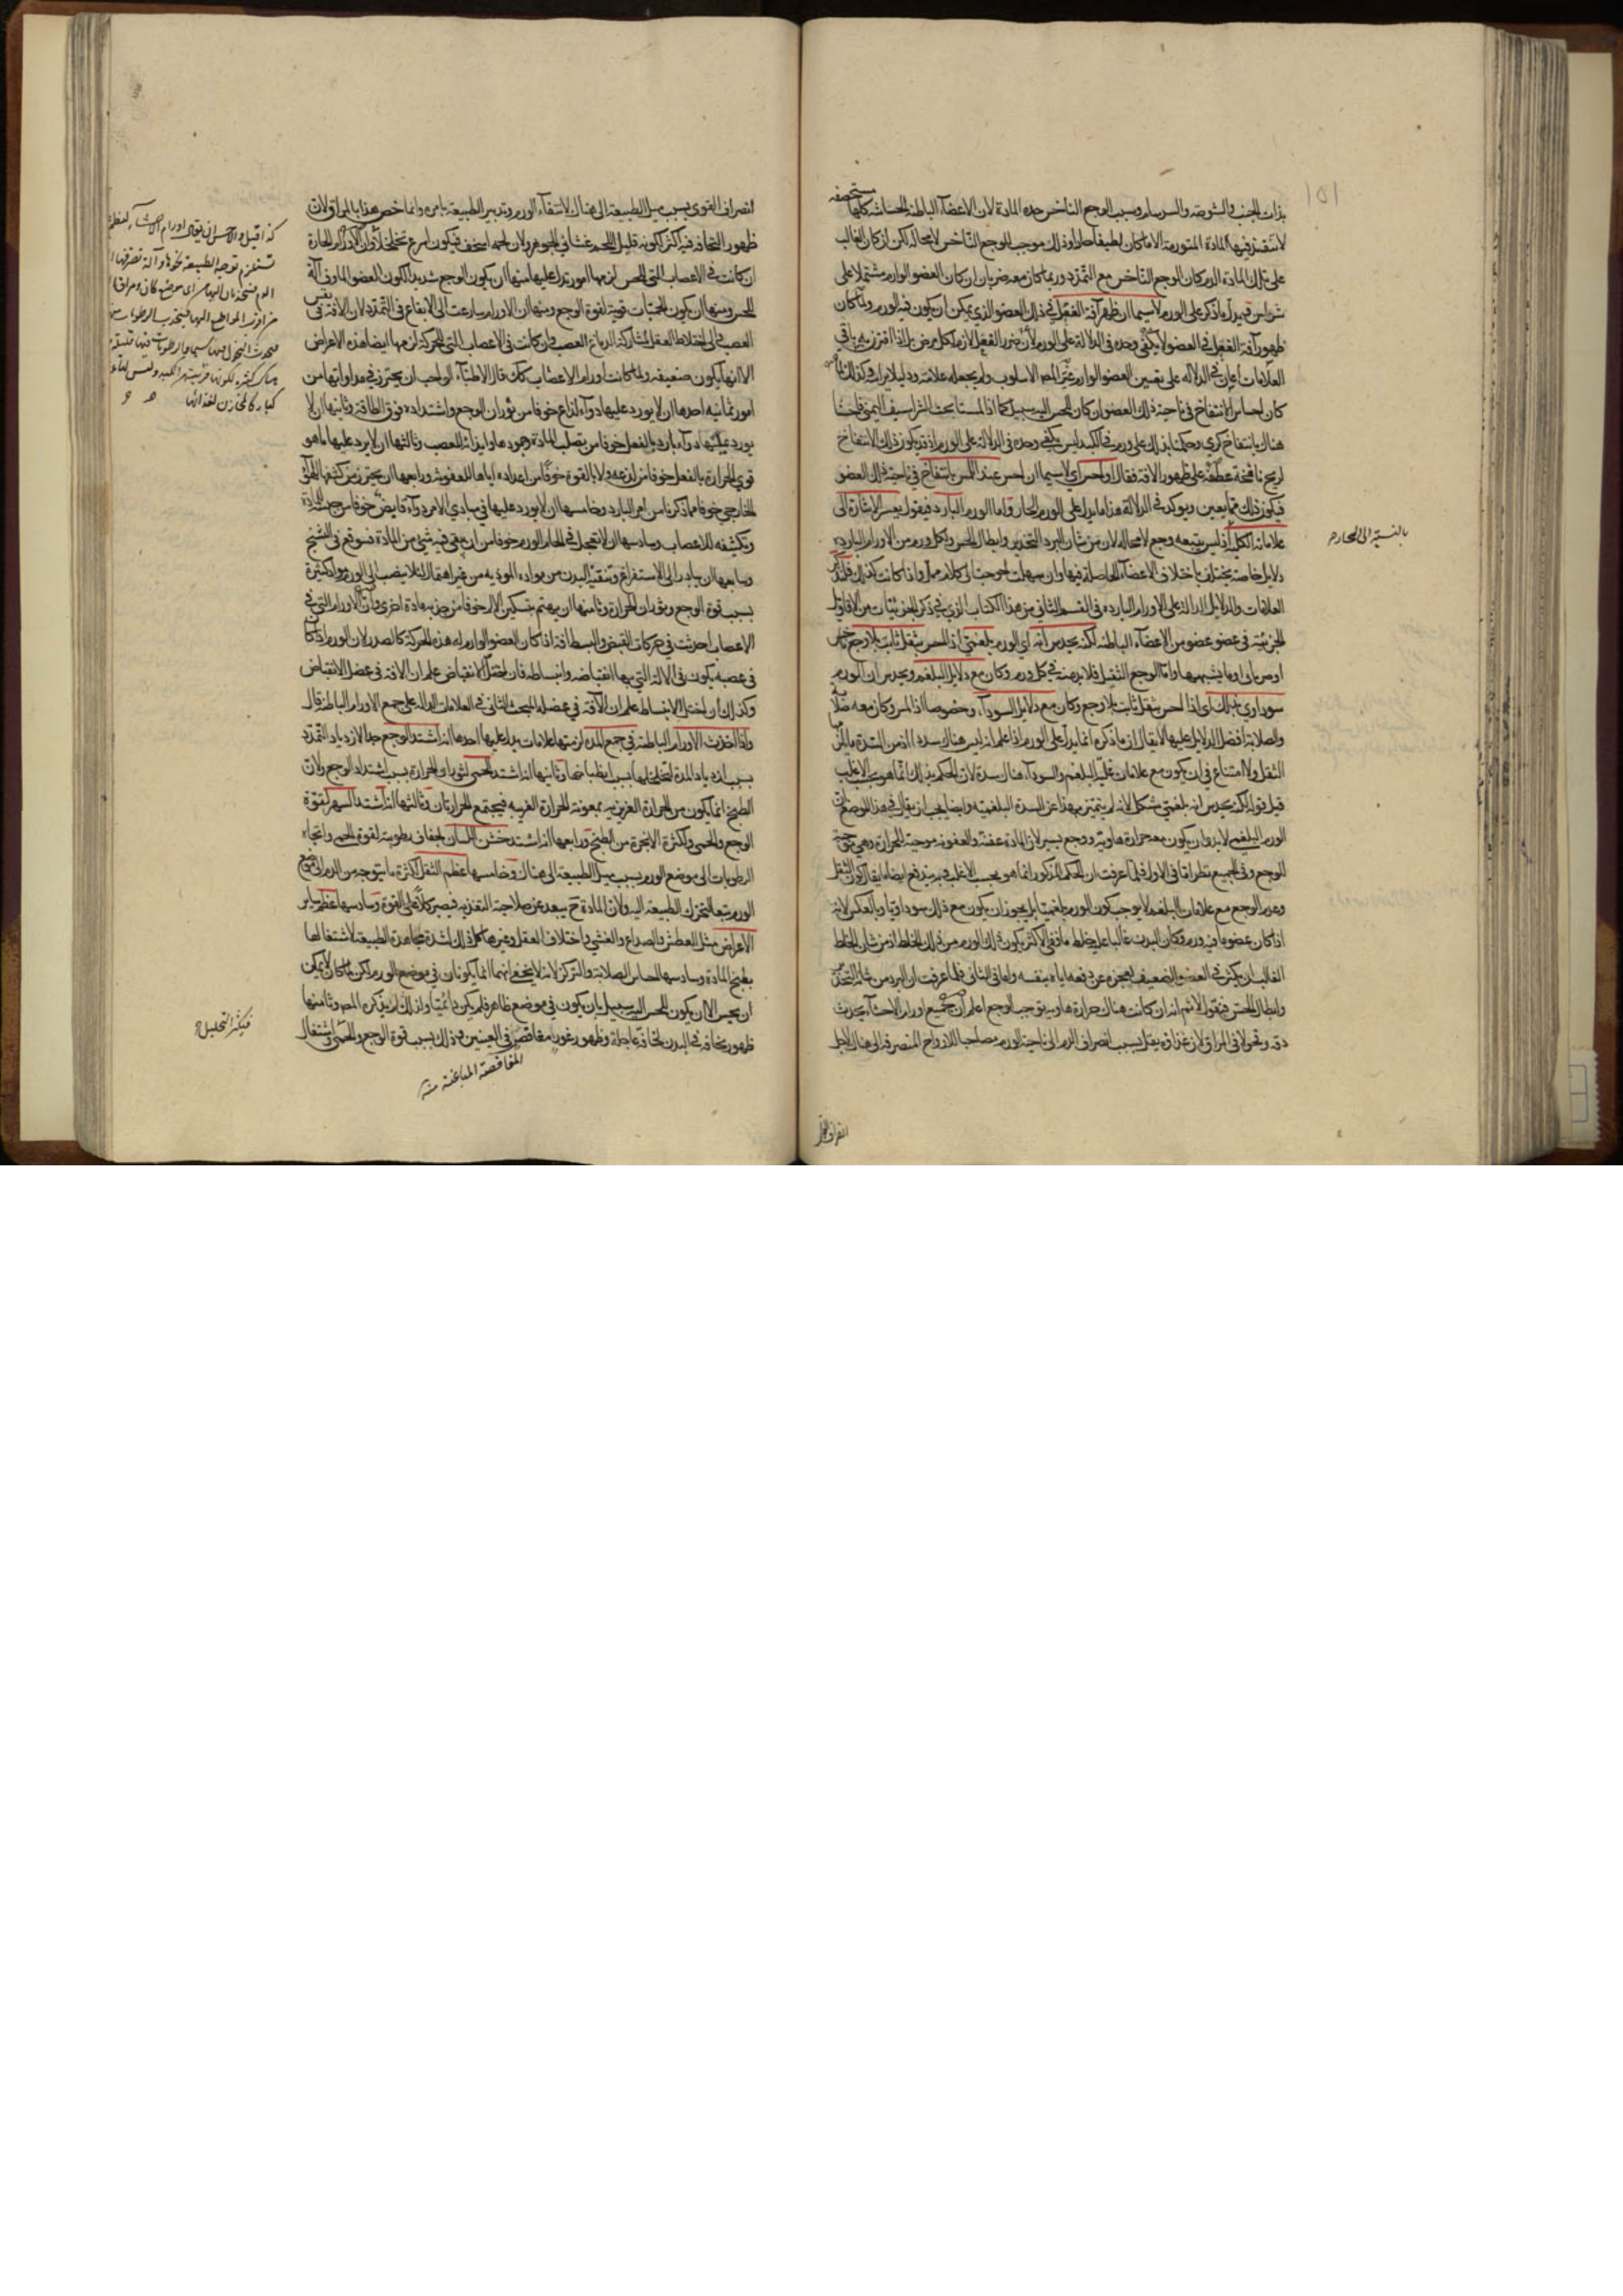 ١٥١
بذات الجنب والشوصة والسرسام وسبب الوجع الناخس حدة المادة لان الاعضاء الباطنة الحساسة كلها
مستحصفة
لا تنفذ فيها المادة المتورمة الا ما كان لطيفا حادا وذلك موجب للوجع الناخس لا محالة لكن ان كان الغالب
على تلك المادة الدم كان الوجع الناخس مع التمدد وربما كان معه ضربان ان كان العضو الوارم مشتملا على
لاسيما ان ظهر آفة الفعل في ذلك العضو الذي يمكن ان يكون فيه الورم ولما كان
ظهور آفة الفعل في العضو لا يكفي وحده في الدلالة على الورم لان ضرر الفعل لازم لكل مرض بل اذا اقترن به باقي
العلامات اعان في الدلالة على تعيين العضو الوارم غير المص الاسلوب ولم يجعله علامة ودليلا براسه وكذلك
كان احساس الانتفاخ في ناحية ذلك العضو ان كان للحس اليه سبيل كما اذا لمسنا تحت الشراسيف اليمنى فاحسنا
هناك بانتفاخ كري وحكمنا بذلك على ورم في الكبد ليس يكفي وحده في الدلالة على الورم اذ قد يكون ذلك الانتفاخ
لريح نافخة عطفه على ظهور الافة فقال او احس اي لاسيما ان احس عند اللمس بانتفاخ في ناحية ذلك العضو
فيكون ذلك مما يعين ويوكد في الدلالة هذا ما يدل على الورم الحار واما الورم البارد فيقول يعسر الاشارة الى
علاماته الكلية اذ ليس يتبعه وجع لا محالة لان من شان البرد التخدير وابطال الحس ولكل ورم من الاورام الباردة
بالنسبة الى الحار م
دلايل خاصة يختلف باختلاف الاعضاء الحاصلة فيها وان سهلت احوجت الى كلام ممل واذا كانت كذلك
العلامات والدلايل الدالة على الاورام الباردة في القسم الثاني من هذا الكتاب الذي في ذكر الجزئيات من الاقاويل
الجزئية في عضو عضو من الاعضاء الباطنة لكنه يحدس انه اي الورم بلغمي اذا احس بثقل ثابت بلا وجع
او ضربان او ما يشبههما واما الوجع الثقيل فلا بد منه في كل ورم وكان مع دلايل البلغم ويحدس ان الورم
سوداوي بذلك اي اذا احس بثقل ثابت بلا وجع وكان مع دلايل السوداء وخصوصا اذا لمس وكان معه صلابة
والصلابة افضل الدلايل عليها لا يقال ان ما ذكره انما يدل على الورم اذا علم انه ليس هناك سدة اذ من السدة
الثقل ولا امتناع في ان يكون مع علامات غلبة البلغم والسوداء هناك سدة لان الحكم بذلك انما هو بحسب الاغلب
قيل قوله لكنه يحدس انه بلغمي مشكل لانه لم يتميز بهذا عن السدة البلغمية وايضا يجب ان يقال في هذا الموضع ان
الورم البلغمي لا بد وان يكون معه حرارة هاوية ووجع يسير لان المادة عفنة والعفونة موجبة للحرارة وهي موجبة
للوجع وفي الجميع نظر اما في الاول فلما عرفت ان الحكم المذكور انما هو بحسب الاغلب
وعدم الوجع مع علامات البلغم لا يوجب كون الورم بلغميا بل يجوز ان يكون مع ذلك سوداويا وبالعكس لانه
اذا كان عضو ما فيه ورم وكان البدن غالبا عليه خلط ما ففي الاكثر يكون ذلك الورم من ذلك الخلط اذ من شان الخلط
الغالب ان يكثر في العضو الضعيف لعجزه عن دفعه اياه بنفسه واما في الثاني فلما عرفت ان البرد من شانه التخدير
وابطال الحس فيقول لا نم انه ان كانت هناك حرارة هاوية يوجب الوجع اعلم ان جميع اورام الاحشاء يحدث
دقة ونحولا في المراق لان غذاؤه يقل بسبب انصراف الدم الى ناحية الورم مصاحبا للارواح المنصرفة الى هناك لاجل
انصراف القوى
انصراف القوى بسبب ميل الطبيعة الى هناك لاشفاء الورم وتدبير الطبيعة بامره وانما خص هذا بالمراق لان
ظهور النحافة فيه اكثر لكونه قليل اللحم غشائي الجوهر ولان لحمه اسخف فيكون اسرع تحللا واما الاورام الحارة
ان كانت في الاعصاب التي للحس لزمها امور تدل عليها منها ان يكون الوجع شديدا لكون العضو الماوف آلة
للحس ومنها ان يكون الحميات قوية لقوة الوجع ومنها ان الاورام سارعت الى الايقاع في التمدد لان الافة في نفس
العصب والى اختلاط العقل لمشاركة الدماغ العصب وان كانت في الاعصاب التي للحركة لزمها ايضا هذه الاعراض
الا انها يكون ضعيفة ولما كانت اورام الاعصاب كذلك قال الاطباء الواجب ان يحترز في مداواتها من
امور ثمانية احدها ان لا يورد عليها دواء لذاع خوفا من ثوران الوجع واشتداده فوق الطاقة وثانيها ان لا
يورد عليها دواء بارد بالفعل خوفا من تصلب المادة وجمودها وايذائه للعصب وثالثها ان لا يرد عليها ما هو
قوي الحرارة بالفعل خوفا من لذعه ولا بالقوة خوفا من اعداده اياها للعفونة ورابعها ان يحترز من كشفها للهواء
الخارجي خوفا مما ذكرنا من امر البارد وخامسها ان لا يورد عليها في مبادي الامر دواء قابض خوفا من جمعه المادة
وتكثيفه للاعصاب وسادسها ان لا تعجل في الحام الورم خوفا من ان يبقى فيه شيء من المادة فتوقع في التشنج
وسابعها ان يبادر الى الاستفراغ وتنقية البدن من مواده الموذية من غير اهمال لئلا ينصب الى الورم مواد كثيرة
بسبب قوة الوجع وثوران الحرارة وثامنها ان يهتم بتسكين الالم خوفا من جذبه مادة اخرى وان الاورام التي في
الاعصاب احدثت في حركات القبض والبسط افة اذا كان العضو الوارم له هذه الحركة كالصدر لان الورم اذا كان
في عصبه يكون في الالة التي بها انقباضه وانبساطه فان اختل الانقباض علم ان الافة في عضل الانقباض
وكذلك ان اختل الانبساط علم ان الافة في عضله المبحث الثاني في العلامات الدالة على جمع الاورام الباطنة قال
واذا اخذت الاورام الباطنة في جمع المدة لزمتها علامات يدل عليها احدها انه اشتد الوجع جدا لازدياد التمدد
بسبب ازدياد المدة لتخلخلها بسبب انطباخها وثانيها انه اشتد الحمى لثوران الحرارة بسبب اشتداد الوجع ولان
الطبخ انما يكون من الحرارة الغريزية بمعونة الحرارة الغريبة فيجتمع الحرارتان وثالثها انه اشتد السهر لقوة
الوجع والحمى ولكثرة الابخرة من الطبخ ورابعها انه اشتد خشن اللسان لجفاف رطوبته لقوة الحمى واتجاه
الرطوبات الى موضع الورم بسبب ميل الطبيعة الى هناك وخامسها عظم الثقل لكثرة ما يتوجه من الدم الى موضع
الورم تبعا لتحرك الطبيعة اليه ولان المادة ح يبعد عن صلاحية التغذية فيصير كلا على القوة وسادسها عظم ساير
الاعراض مثل العطش والصداع والغشي واختلاف العقل وغيرها كل ذلك لشدة مجاهدة الطبيعة لاشتغالها
بطبخ المادة وسادسها احساس الصلابة والتركز لانه لا يخفى انهما انما يكونان في موضع الورم لكن لما كان لا يمكن
ان يحس الا ان يكون للحس اليه سبيل بان يكون في موضع ظاهر فلم يكن دائميا ولذلك لم يذكره المص وثامنها
ظهور نحافة في البدن نحافة عاجلة وظهور غؤر مغافص في العينين وذلك بسبب قوة الوجع والحمى واشتغال
المغافصة المباغتة منه
كذا قيل والاحسن ان يقال اورام الاحشاء لعظمها
تستلزم توجه الطبيعة نحوها وآلة تصرفها
الدم فتجذبان اليها من اي موضع كان ومراق
من اقرب المواضع اليها فتجذب الرطوبات منها
فيحدث النحول فيها سيما والرطوبات فيها
هناك كثيرة لكونها قريبة من الكبد وليس
كبار كالمخازن لغذائها
فيكثر التحليل ح